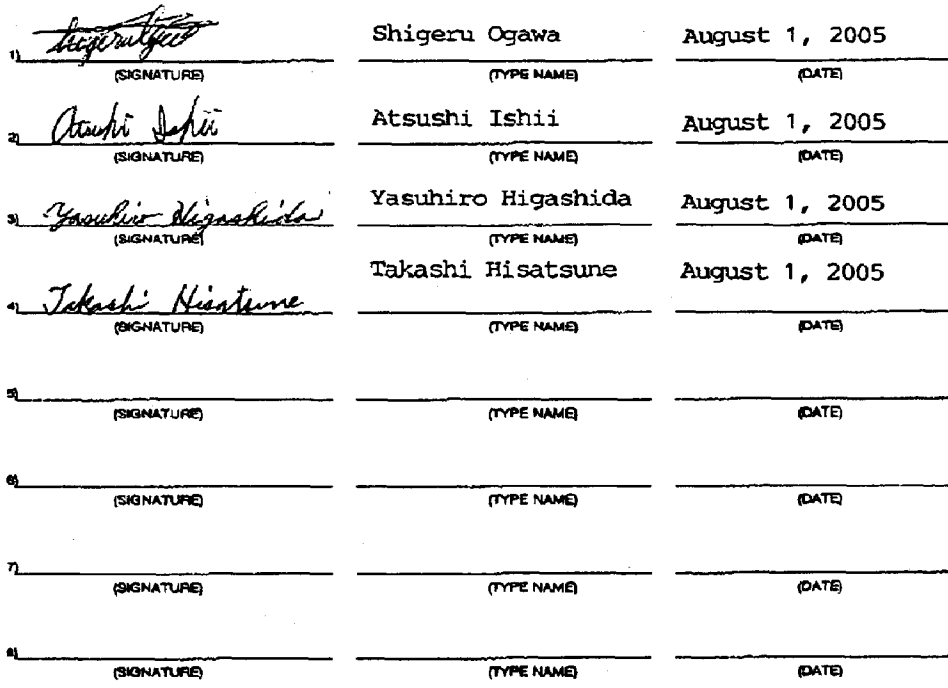 1) Shigeru Ogawa Shigeru Ogawa August 1, 2005
(SIGNATURE) (TYPE NAME) (DATE)
2) Atsushi Ishii Atsushi Ishii August 1, 2005
(SIGNATURE) (TYPE NAME) (DATE)
3) Yasuhiro Higashida Yasuhiro Higashida August 1, 2005
(SIGNATURE) (TYPE NAME) (DATE)
4) Takashi Hisatsune Takashi Hisatsune August 1, 2005
(SIGNATURE) (TYPE NAME) (DATE)
5)
(SIGNATURE) (TYPE NAME) (DATE)
6)
(SIGNATURE) (TYPE NAME) (DATE)
7)
(SIGNATURE) (TYPE NAME) (DATE)
8)
(SIGNATURE) (TYPE NAME) (DATE)